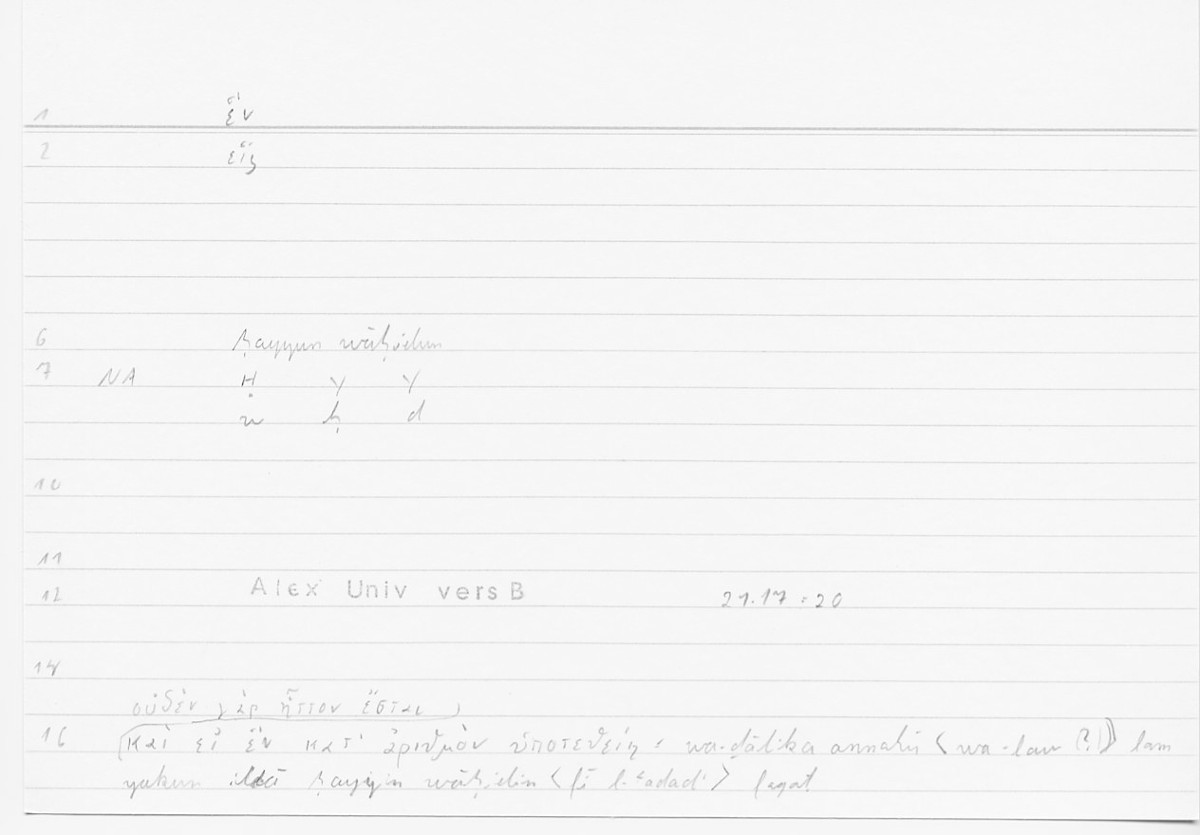 1 ἕν
2 εἷς
6 ḥayyun wāḥidun
7 NA Ḥ Y Y
w ḥ d
10
11
12 Alex Univ vers B 21.17 = 20
14
οὐδὲν γὰρ ἧττον ἔσται
16 καὶ εἰ ἓν κατ' ἀριθμὸν ὑποτεθείη = wa-ḏālika annahū ⟨wa-law (?)⟩ lam
yakun illā ḥayyin wāḥidin ⟨fī l-ʿadadi⟩ faqaṭ